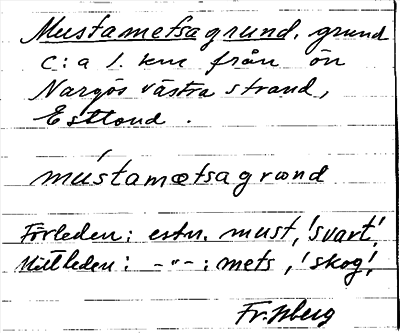 Mustametsagrund. grund
c:a 1. km från ön
Nargös västra strand,
Estland.
mústamætsagrund
Förleden: estn. must, 'svart'.
Mittleden: -"-: mets, 'skog'.